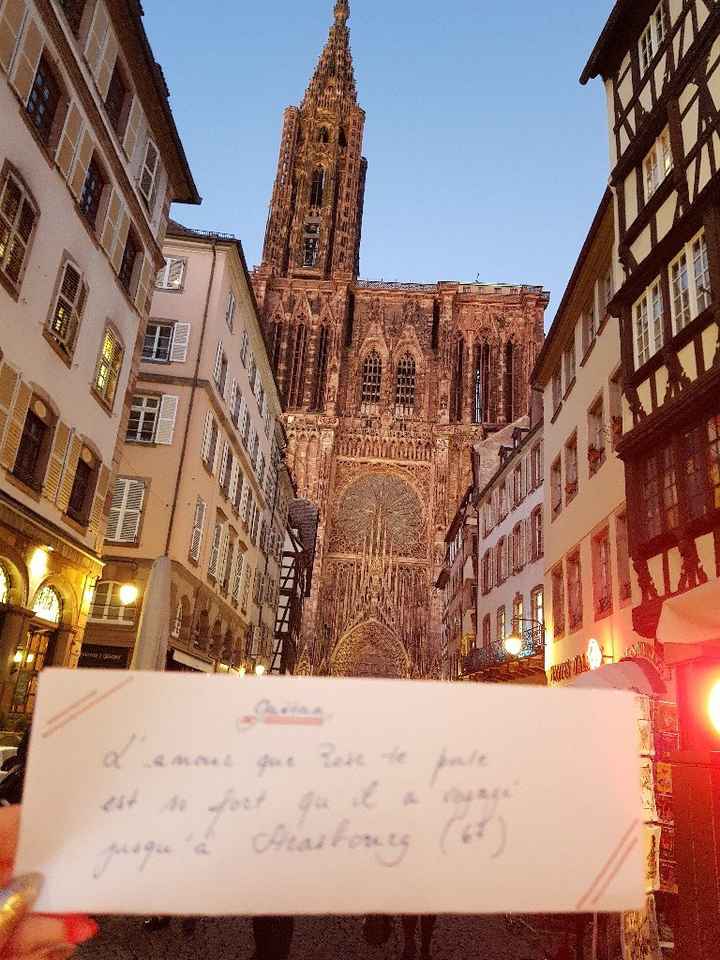 Gaëtan
L'amour que Rose te porte
est si fort qu'il a voyagé
jusqu'à Strasbourg (67)